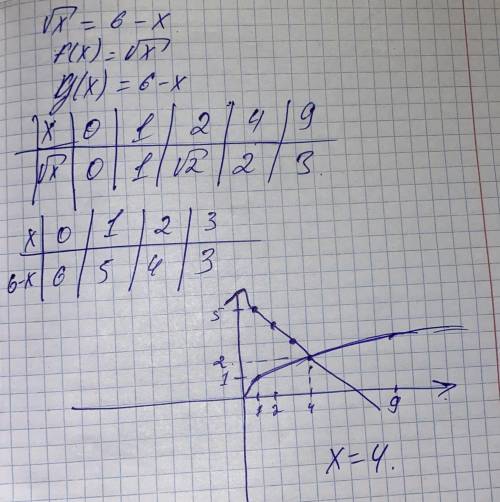 √x = 6 - x
f(x) = √x
g(x) = 6 - x
x | 0 | 1 | 2 | 4 | 9
√x | 0 | 1 | √2 | 2 | 3
x | 0 | 1 | 2 | 3
6-x | 6 | 5 | 4 | 3
5
2
1
1 2 4 9
x = 4.